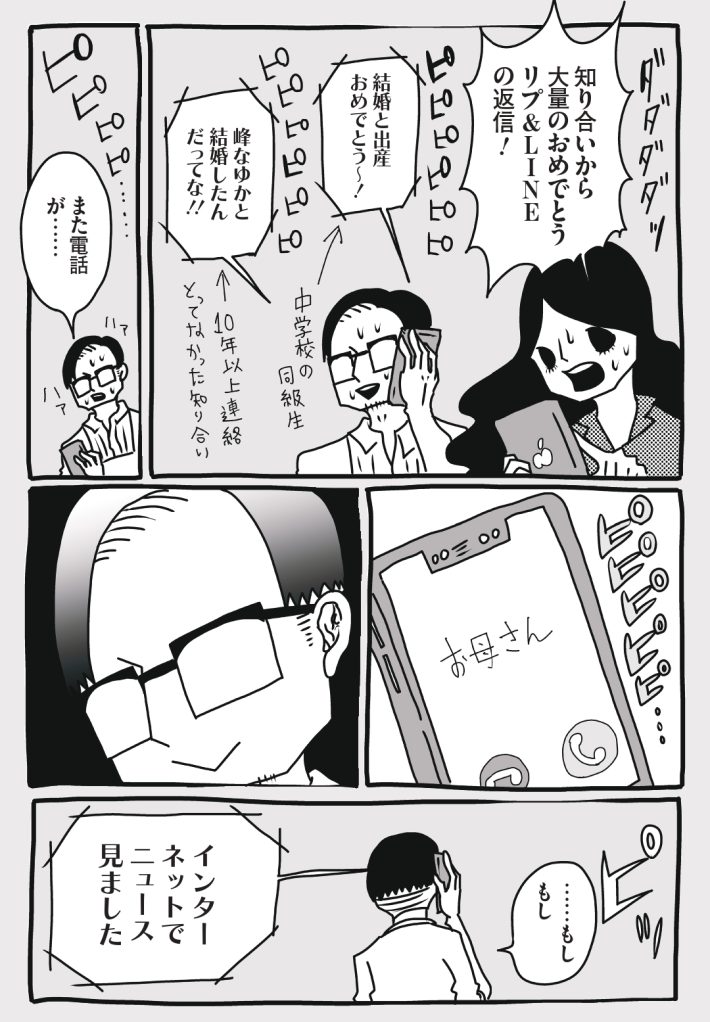 ダダダダッ
知り合いから
大量のおめでとう
リプ&LINE
の返信!
ピピピピピピ
結婚と出産
おめでとう〜!
中学校の
同級生
ピピピピピピ
峰なゆかと
結婚したん
だってな!!
10年以上連絡
とってなかった知り合い
ピピピピ……
また電話
が……
ハァ
ハァ
ピピピピピ…
お母さん
ピッ
……もし
もし
インター
ネットで
ニュース
見ました